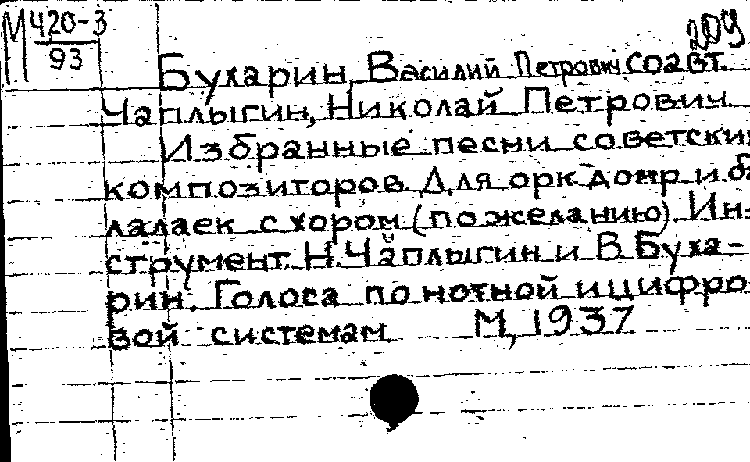 М 420-3
93
209
Бухарин, Василий Петрович соавт.
Чаплыгин, Николай Петрович
Избранные песни советски
композиторов. Для орк домр и ба
лалаек с хором (по желанию). Ин-
струмент. Н. Чаплыгин и В. Буха-
рин. Голоса по нотной и цифро
вой системам. М, 1937